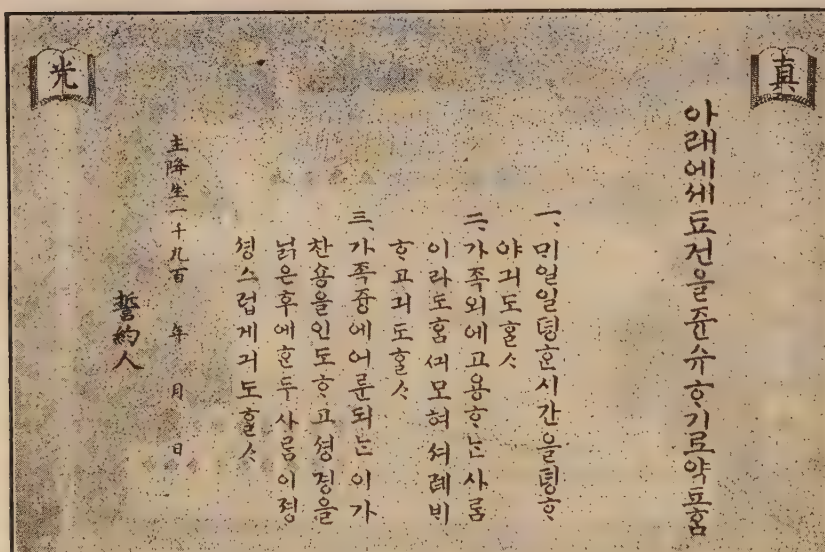 真
光
아래에세됴건을쥰슈ᄒᆞ기로약됴홈
一、ᄆᆡ일일뎡ᄒᆞᆫ시간을뎡ᄒᆞ
야긔도ᄒᆞᆯᄉ
二、가족외에고용ᄒᆞᄂᆞᆫ사ᄅᆞᆷ
이라도홈ᄭᅴ모혀셔례비
ᄒᆞ고긔도ᄒᆞᆯᄉ
三、가족즁에어룬되ᄂᆞᆫ이가
찬숑을인도ᄒᆞ고셩경을
닑은후에ᄒᆞᆫ두사ᄅᆞᆷ이졍
셩스럽게긔도ᄒᆞᆯᄉ
主降生一千九百 年 月 日
誓約人